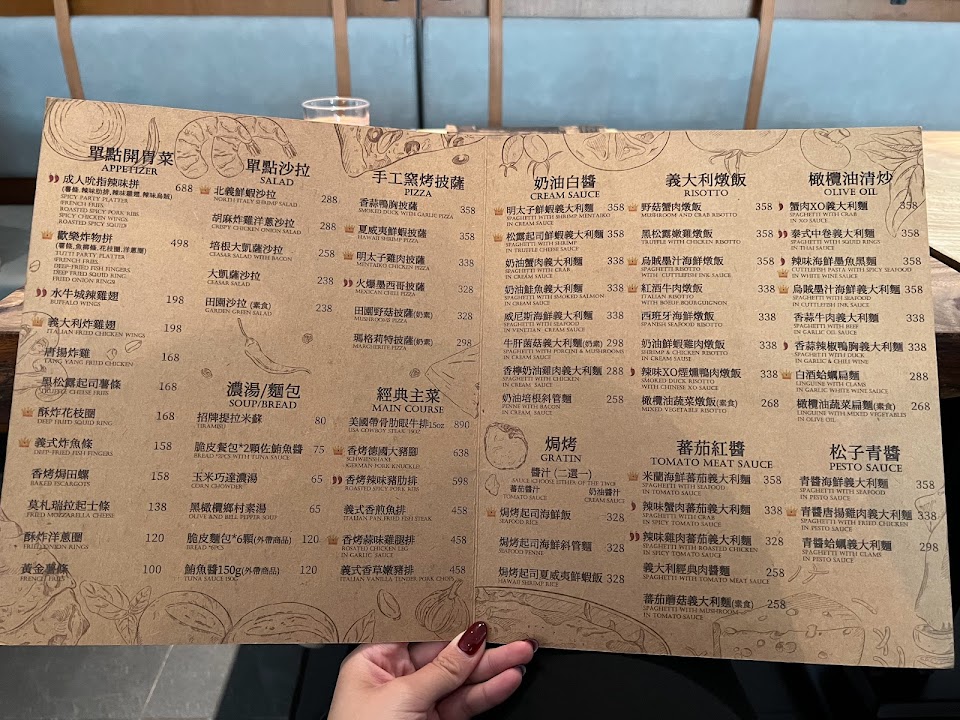 單點開胃菜
APPETIZER
成人吮指辣味拼 688
(薯條,辣味肋排,辣味雞翅,辣味烏賊)
SPICY PARTY PLATTER
@FRENCH FRIES
ROASTED SPICY PORK RIBS
SPICY CHICKEN WINGS
ROASTED SPICY SQUID
歡樂炸物拼 498
(薯條,魚柳條,花枝圈,洋蔥圈)
TUTTI PARTY PLATTER
@FRENCH FRIES
DEEP-FRIED FISH FINGERS
DEEP-FRIED SQUID RING
FRIED ONION RINGS
水牛城辣雞翅 198
BUFFALO WINGS
義大利炸雞翅 198
ITALIAN FRIED CHICKEN WINGS
唐揚炸雞 168
TANG YANG FRIED CHICKEN
黑松露起司薯條 168
TRUFFLE CHEESE FRIES
酥炸花枝圈 168
DEEP-FRIED SQUID RING
義式炸魚條 158
DEEP-FRIED FISH FINGERS
香烤焗田螺 158
BAKED ESCARGOTS
莫札瑞拉起士條 138
FRIED MOZZARELLA CHEESE
酥炸洋蔥圈 120
FRIED ONION RINGS
黃金薯條 100
FRENCH FRIES
單點沙拉
SALAD
北義鮮蝦沙拉 288
NORTH ITALY SHRIMP SALAD
胡麻炸雞洋蔥沙拉 288
CRISPY CHICKEN ONION SALAD
培根大凱薩沙拉 258
CEASAR SALAD WITH BACON
大凱薩沙拉 238
CEASAR SALAD
田園沙拉(素食) 238
GARDEN GREEN SALAD
濃湯/麵包
SOUP/BREAD
招牌提拉米蘇 80
TIRAMISU
脆皮餐包*2顆佐鮪魚醬 75
BREAD *2PCS WITH TUNA SAUCE
玉米巧達濃湯 65
CORN CHOWDER
黑橄欖鄉村素湯 65
OLIVE AND BELL PEPPER SOUP
脆皮麵包*6顆(外帶商品) 120
BREAD *6PCS
鮪魚醬150g(外帶商品) 120
TUNA SAUCE 150G
手工窯烤披薩
PIZZA
香蒜鴨胸披薩 358
SMOKED DUCK WITH GARLIC PIZZA
夏威夷鮮蝦披薩 358
HAWAII SHRIMP PIZZA
明太子雞肉披薩 338
MENTAIKO CHICKEN PIZZA
火爆墨西哥披薩 328
MEXICAN CHILI PIZZA
田園野菇披薩(奶素) 328
MUSHROOMS PIZZA
瑪格莉特披薩(奶素) 298
MARGHERITE PIZZA
經典主菜
MAIN COURSE
美國帶骨肋眼牛排15oz 890
USA COWBOY STEAK 15OZ
香烤德國大豬腳 638
SCHWEINSHAXE
(GERMAN PORK KNUCKLE)
香烤辣味豬肋排 598
ROASTED SPICY PORK RIBS
義式香煎魚排 458
ITALIAN PAN FRIED FISH STEAK
香烤蒜味雞腿排 458
ROAST(H) CHICKEN LEG
IN GARLIC SAUCE
義式香草嫩豬排 458
ITALIAN VANILLA TENDER PORK CHOPS
奶油白醬
CREAM SAUCE
明太子鮮蝦義大利麵 358
SPAGHETTI WITH SHRIMP MENTAIKO
IN CREAM SAUCE
松露起司鮮蝦義大利麵 358
SPAGHETTI WITH SHRIMP
IN TRUFFLE CHEESE SAUCE
奶油蟹肉義大利麵 358
SPAGHETTI WITH CRAB
IN CREAM SAUCE
奶油鮭魚義大利麵 358
SPAGHETTI WITH SMOKED SALMON
IN CREAM SAUCE
威尼斯海鮮義大利麵 338
SPAGHETTI WITH SEAFOOD
IN VENETIAN CREAM SAUCE
牛肝菌菇義大利麵(奶素) 298
SPAGHETTI WITH PORCINI & MUSHROOMS
IN CREAM SAUCE
香檸奶油雞肉義大利麵 288
SPAGHETTI WITH CHICKEN
IN CREAM SAUCE
奶油培根斜管麵 258
PENNE WITH BACON
IN CREAM SAUCE
焗烤
GRATIN
醬汁 (二選一)
SAUCE (CHOOSE EITHER OF THE TWO)
蕃茄醬汁 奶油醬汁
TOMATO SAUCE CREAM SAUCE
焗烤起司海鮮飯 328
SEAFOOD RICE
焗烤起司海鮮斜管麵 328
SEAFOOD PENNE
焗烤起司夏威夷鮮蝦飯 328
HAWAII SHRIMP RICE
義大利燉飯
RISOTTO
野菇蟹肉燉飯 358
MUSHROOM AND CRAB RISOTTO
黑松露嫩雞燉飯 358
TRUFFLE WITH CHICKEN RISOTTO
烏賊墨汁海鮮燉飯 358
RISOTTO WITH SEAFOOD
WITH CUTTLEFISH INK SAUCE
紅酒牛肉燉飯 358
ITALIAN RISOTTO
WITH BOEUF BOURGUIGNON
西班牙海鮮燉飯 338
SPANISH SEAFOOD RISOTTO
奶油鮮蝦雞肉燉飯 338
SHRIMP & CHICKEN RISOTTO
IN CREAM SAUSE
辣味XO煙燻鴨肉燉飯 338
SMOKED DUCK RISOTTO
WITH CHINESE XO SAUCE
橄欖油蔬菜燉飯(素食) 268
MIXED VEGETABLE RISOTTO
蕃茄紅醬
TOMATO MEAT SAUCE
米蘭海鮮蕃茄義大利麵 358
SPAGHETTI WITH SEAFOOD
IN TOMATO SAUCE
辣味蟹肉蕃茄義大利麵 338
SPAGHETTI WITH CRAB
IN SPICY TOMATO SAUCE
辣味雞肉蕃茄義大利麵 328
SPAGHETTI WITH ROASTED CHICKEN
IN SPICY TOMATO SAUCE
義大利經典肉醬麵 258
SPAGHETTI WITH TOMATO MEAT SAUCE
蕃茄蘑菇義大利麵(素食) 258
SPAGHETTI WITH MUSHROOM
IN TOMATO SAUCE
橄欖油清炒
OLIVE OIL
蟹肉XO義大利麵 358
SPAGHETTI WITH CRAB
IN XO SAUCE
泰式中卷義大利麵 358
SPAGHETTI WITH SQUID RINGS
IN THAI SAUCE
辣味海鮮墨魚黑麵 358
CUTTLEFISH PASTA WITH SPICY SEAFOOD
IN WHITE WINE SAUCE
烏賊墨汁海鮮義大利麵 358
SPAGHETTI WITH SEAFOOD
IN CUTTLEFISH INK SAUCE
香蒜牛肉義大利麵 338
SPAGHETTI WITH BEEF
IN GARLIC OIL SAUCE
香蒜辣椒鴨胸義大利麵 338
SPAGHETTI WITH DUCK
IN GARLIC & CHILI WINE
白酒蛤蠣扁麵 288
LINGUINE WITH CLAMS
IN GARLIC WHITE WINE SAUCE
橄欖油蔬菜扁麵(素食) 268
LINGUINE WITH MIXED VEGETABLES
IN OLIVE OIL
松子青醬
PESTO SAUCE
青醬海鮮義大利麵 358
SPAGHETTI WITH SEAFOOD
IN PESTO SAUCE
青醬唐揚雞肉義大利麵 338
SPAGHETTI WITH FRIED CHICKEN
IN PESTO SAUCE
青醬蛤蠣義大利麵 298
SPAGHETTI WITH CLAMS
IN PESTO SAUCE